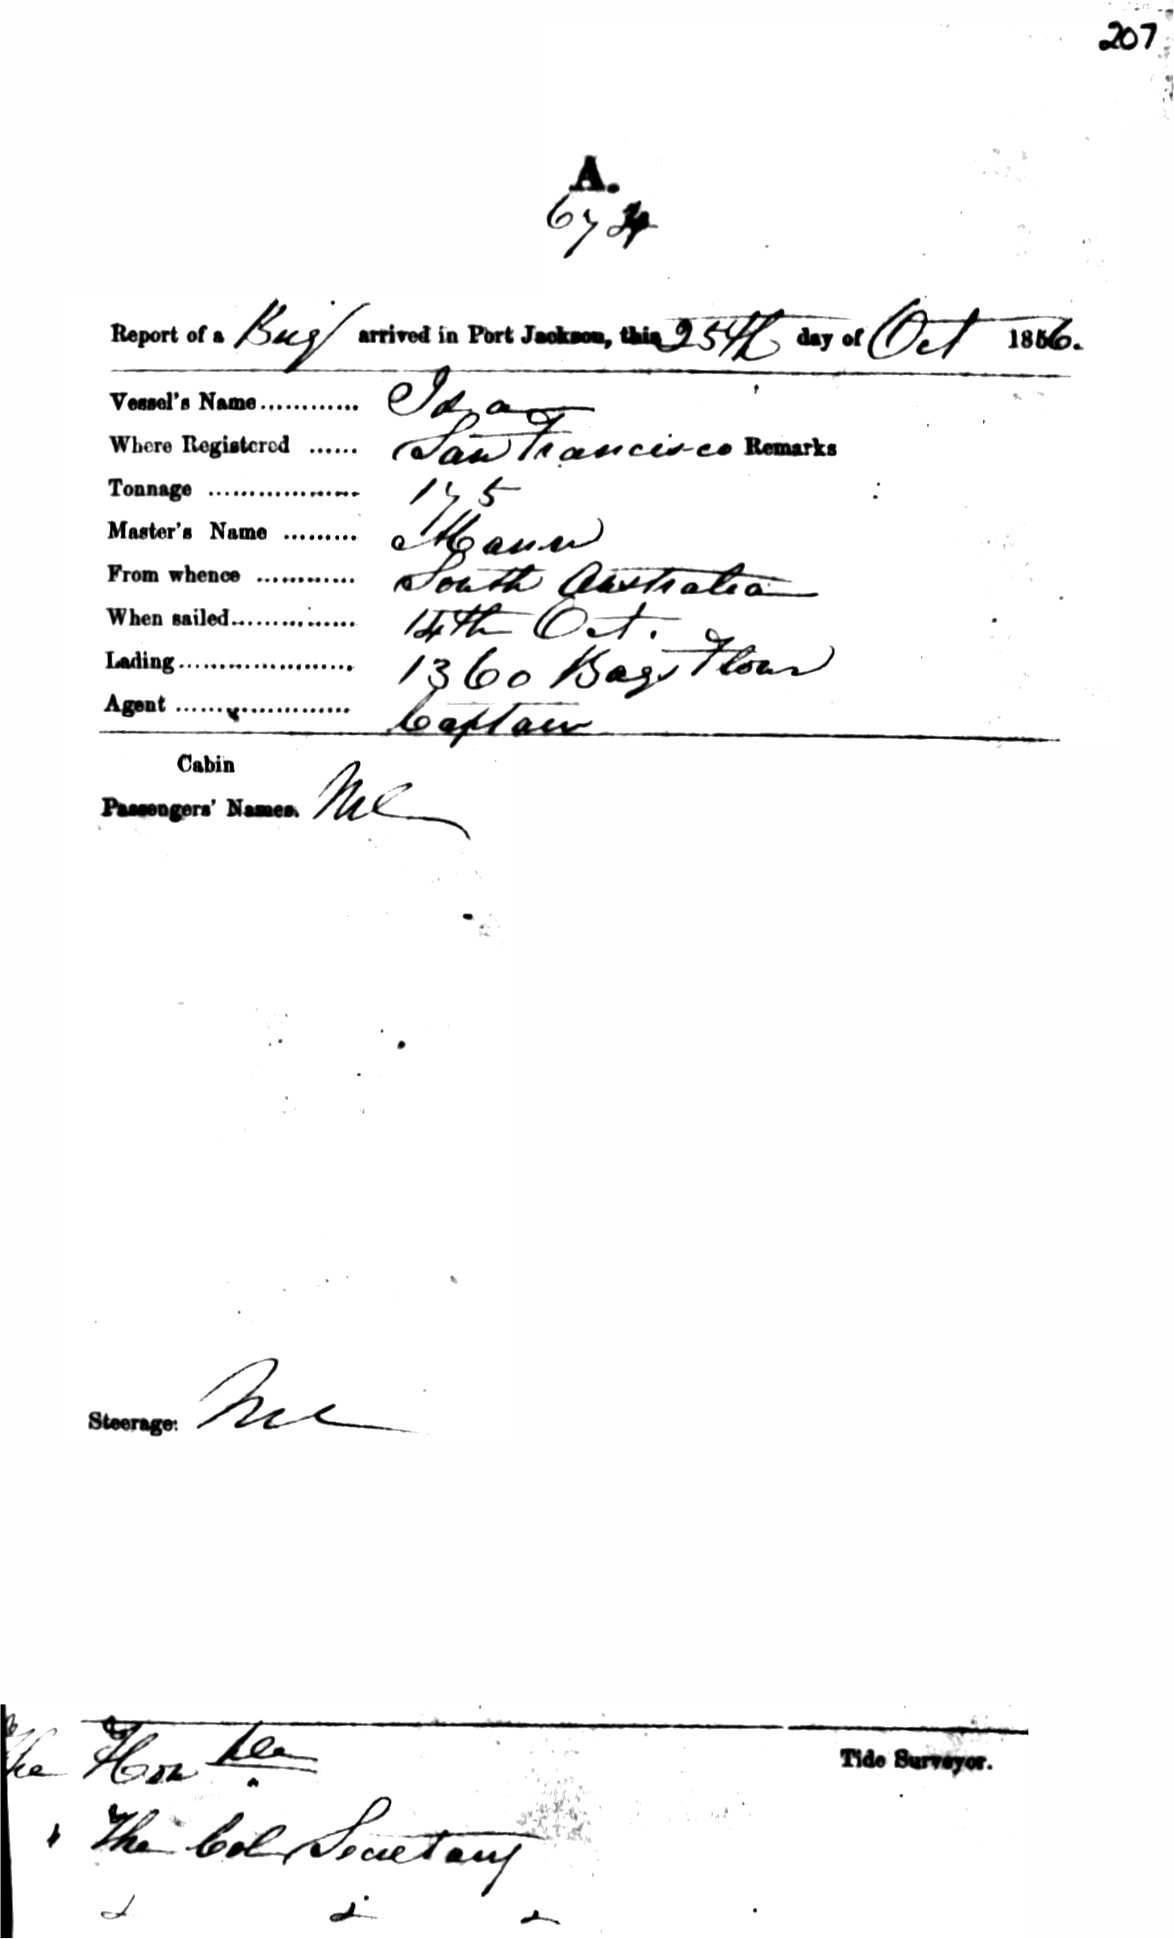 207
A.
674
Report of a Brig arrived in Port Jackson, this 25th day of Oct 1856.
Vessel's Name............ Ida
Where Registered ...... San Francisco Remarks
Tonnage .................. 175
Master's Name ......... Mann
From whence ............ South Australia
When sailed............... 14th Oct.
Lading..................... 1360 Bags Flour
Agent ..................... Captain
Cabin
Passengers' Names. Nil
Steerage: Nil
The Honble
Tide Surveyor.
The Col Secretary